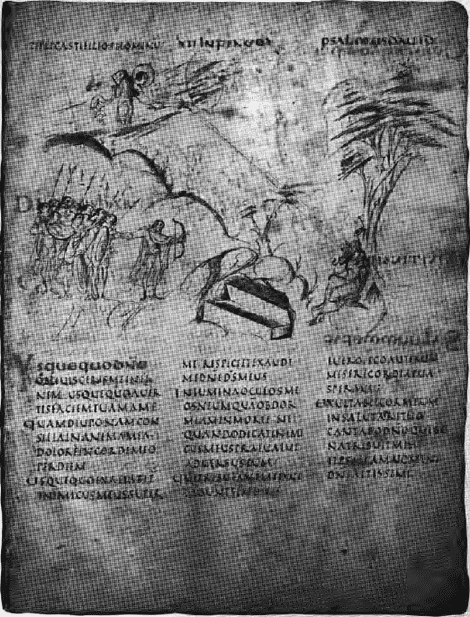 XII INFINEM PSALMUSDAVID
USQUEQUODNE
OBLIUISCERISMEIINFI
NEM USQUEQUOAUER
TISFACIEMTUAMAME
QUAMDIUPONAMCON
SILIAINANIMAMEA
DOLOREMINCORDEMEO
PERDIEM
USQUEQUOEXALTABIT
INIMICUSMEUSSUPER
ME RESPICEETEXAUDI
MEDNEDSMEUS
INLUMINAOCULOSME
OSNEUMQUAMOBDOR
MIAMINMORTE NE
QUANDODICATINIMI
CUSMEUSPRAEUALUI
ADUERSUSEUM
QUITRIBULANTME
FUERO EGOAUTEMIN
MISERICORDIATUA
SPERAUI
EXULTABITCORMEUM
INSALUTARITUO
CANTABODNOQUIBO
NATRIBUITMIHI
ETPSALLAMNOMINI
DNIALTISSIMI